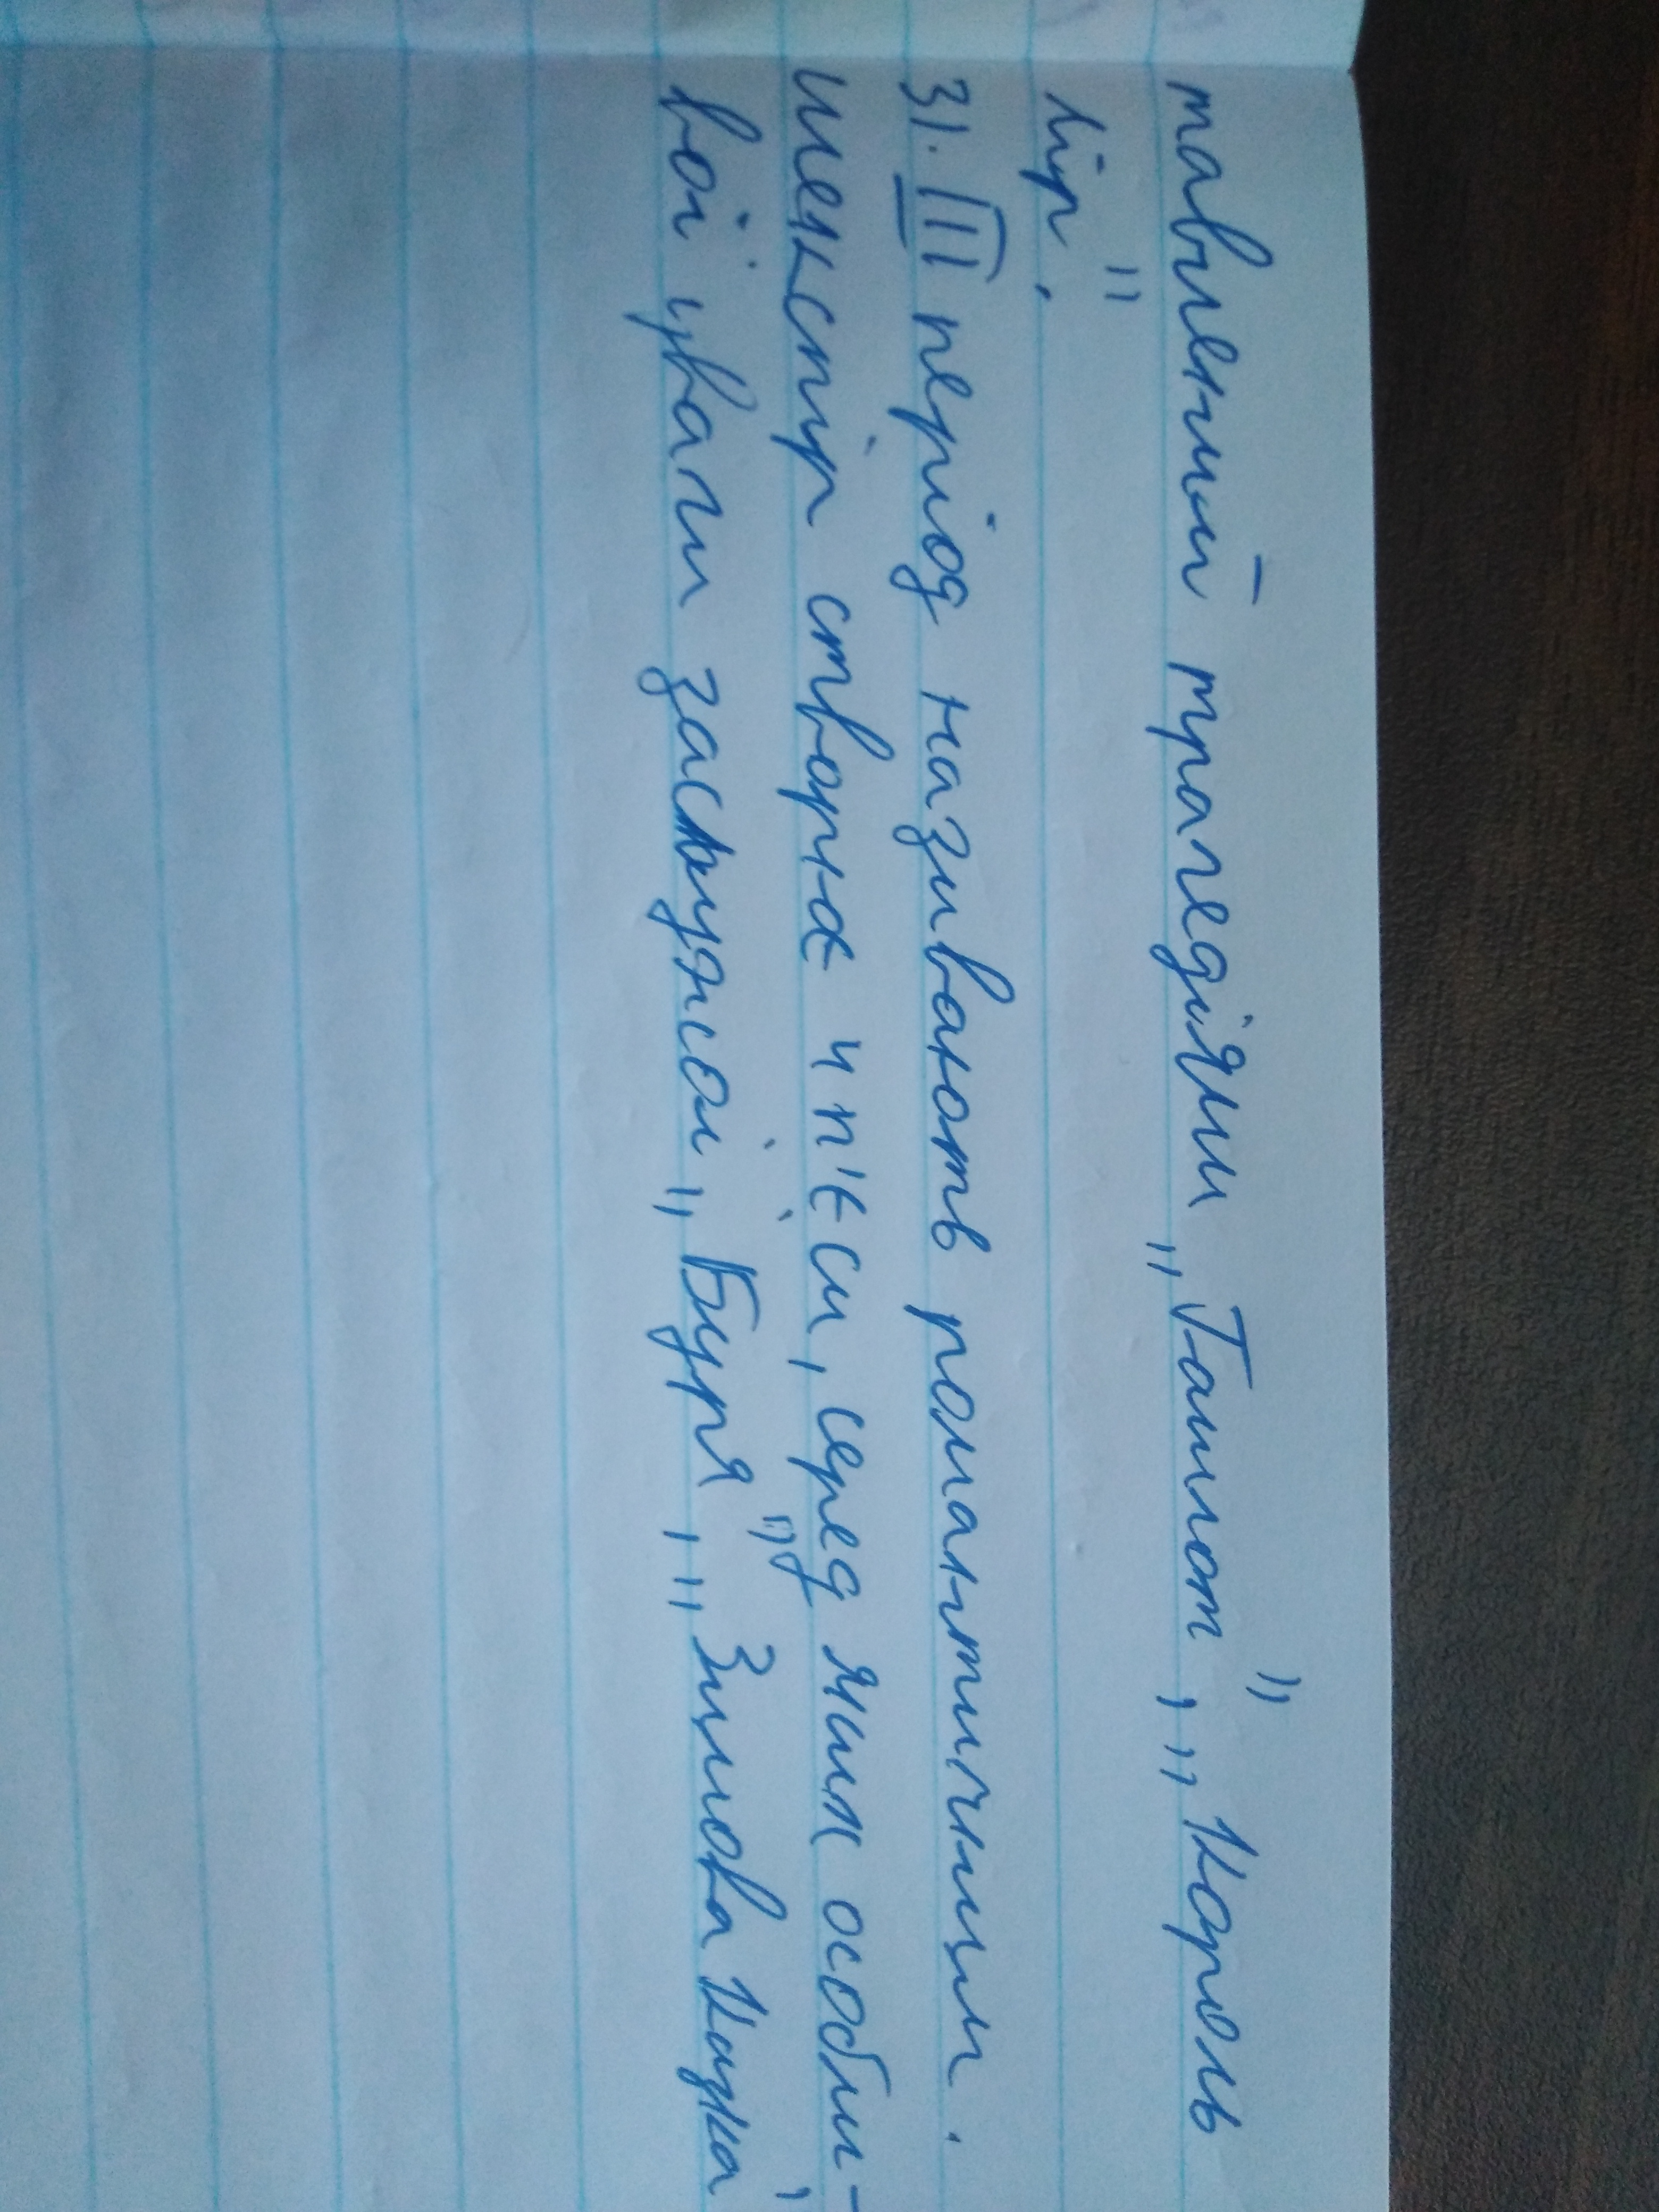 тавлений трагедіями „Гамлет", „Король
Лір".
3). III період називають романтичним.
Шекспір створює 4 п'єси, серед яких особли-
вої уваги заслуговує „Буря", „Зимова казка"